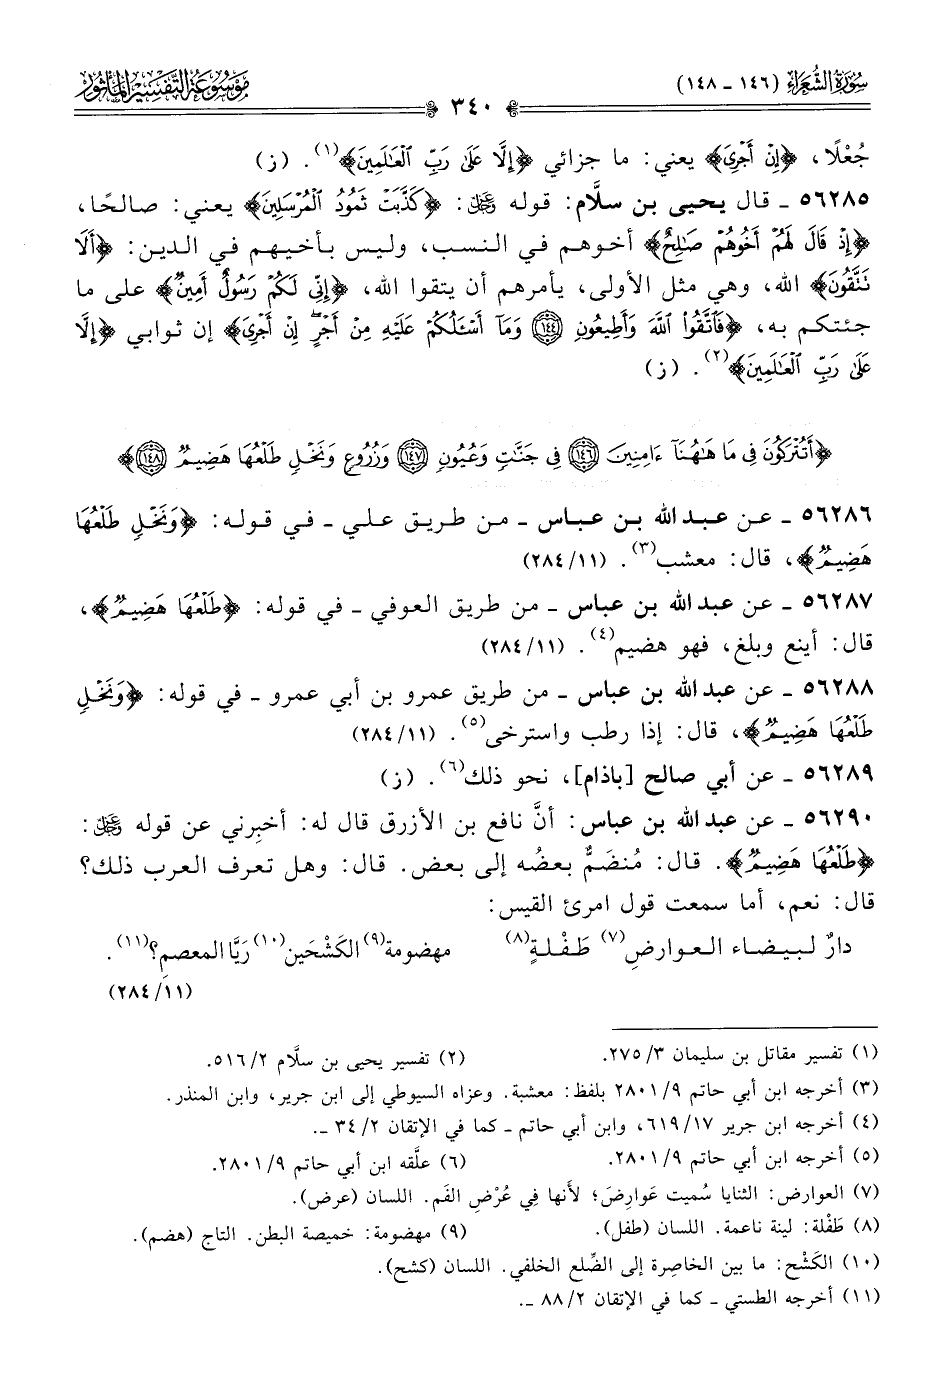 سُورَةُ الشُّعَرَاءِ (١٤٦ - ١٤٨)
٣٤٠
مَوْسُوعَةُ التَّفْسِيرِ المَأْثُورِ
جُعْلًا، ﴿إِنْ أَجْرِيَ﴾ يعني: ما جزائي ﴿إِلَّا عَلَىٰ رَبِّ الْعَالَمِينَ﴾(١). (ز)
٥٦٢٨٥ ـ قال يحيى بن سلَّام: قوله ﷿: ﴿كَذَّبَتْ ثَمُودُ الْمُرْسَلِينَ﴾ يعني: صالحًا،
﴿إِذْ قَالَ لَهُمْ أَخُوهُمْ صَالِحٌ﴾ أخوهم في النسب، وليس بأخيهم في الدين: ﴿أَلَا
تَتَّقُونَ﴾ الله، وهي مثل الأولى، يأمرهم أن يتقوا الله، ﴿إِنِّي لَكُمْ رَسُولٌ أَمِينٌ﴾ على ما
جئتكم به، ﴿فَاتَّقُوا اللَّهَ وَأَطِيعُونِ ١٤٤ وَمَا أَسْـَٔلُكُمْ عَلَيْهِ مِنْ أَجْرٍ إِنْ أَجْرِيَ﴾ إن ثوابي ﴿إِلَّا
عَلَىٰ رَبِّ الْعَالَمِينَ﴾(٢). (ز)
﴿أَتُتْرَكُونَ فِي مَا هَاهُنَا ءَامِنِينَ ١٤٦ فِي جَنَّاتٍ وَعُيُونٍ ١٤٧ وَزُرُوعٍ وَنَخْلٍ طَلْعُهَا هَضِيمٌ ١٤٨﴾
٥٦٢٨٦ ـ عن عبد الله بن عباس ـ من طريق علي ـ في قوله: ﴿وَنَخْلٍ طَلْعُهَا
هَضِيمٌ﴾، قال: معشب(٣). (١١/ ٢٨٤)
٥٦٢٨٧ ـ عن عبد الله بن عباس ـ من طريق العوفي ـ في قوله: ﴿طَلْعُهَا هَضِيمٌ﴾،
قال: أينع وبلغ، فهو هضيم(٤). (١١/ ٢٨٤)
٥٦٢٨٨ ـ عن عبد الله بن عباس ـ من طريق عمرو بن أبي عمرو ـ في قوله: ﴿وَنَخْلٍ
طَلْعُهَا هَضِيمٌ﴾، قال: إذا رطب واسترخى(٥). (١١/ ٢٨٤)
٥٦٢٨٩ ـ عن أبي صالح [باذام]، نحو ذلك(٦). (ز)
٥٦٢٩٠ ـ عن عبد الله بن عباس: أنَّ نافع بن الأزرق قال له: أخبِرني عن قوله ﷿:
﴿طَلْعُهَا هَضِيمٌ﴾. قال: مُنضَمٌّ بعضُه إلى بعض. قال: وهل تعرف العرب ذلك؟
قال: نعم، أما سمعت قول امرئ القيس:
دارٌ لبيضاء العوارضِ(٧) طَفْلةٍ(٨) مهضومة(٩) الكَشْحَين(١٠) رَيَّا المعصمِ؟(١١).
(١١/ ٢٨٤)
(١) تفسير مقاتل بن سليمان ٣/ ٢٧٥. (٢) تفسير يحيى بن سلَّام ٢/ ٥١٦.
(٣) أخرجه ابن أبي حاتم ٩/ ٢٨٠١ بلفظ: معشبة. وعزاه السيوطي إلى ابن جرير، وابن المنذر.
(٤) أخرجه ابن جرير ١٧/ ٦١٩، وابن أبي حاتم ـ كما في الإتقان ٢/ ٣٤ ـ.
(٥) أخرجه ابن أبي حاتم ٩/ ٢٨٠١. (٦) علَّقه ابن أبي حاتم ٩/ ٢٨٠١.
(٧) العوارض: الثنايا سُميت عَوارِضَ؛ لأنها فِي عُرْضِ الفَم. اللسان (عرض).
(٨) طَفْلة: لينة ناعمة. اللسان (طفل). (٩) مهضومة: خميصة البطن. التاج (هضم).
(١٠) الكَشْح: ما بين الخاصِرة إلى الضِّلع الخلفي. اللسان (كشح).
(١١) أخرجه الطستي ـ كما في الإتقان ٢/ ٨٨ ـ.